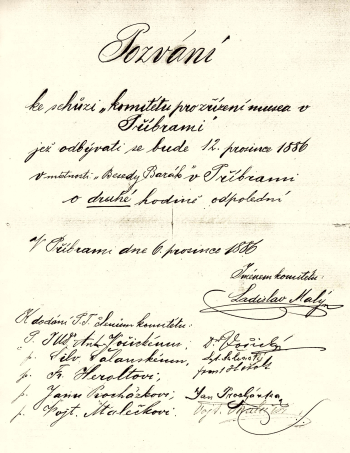 Pozvání
ke schůzi „komitétu pro zřízení musea v
Příbrami"
jež odbývati se bude 12. prosince 1886
v místnosti „Besedy Barák" v Příbrami
o druhé hodině odpolední
V Příbrami dne 6. prosince 1886
Jménem komitétu:
Ladislav Malý
K dodání P.T. členům komitétu:
P. JUDr Ant. Voříškému; Dr Voříšký
p. Silv.
p. Fr. Heroltovi;
p. Janu Procházkovi; Jan Procházka
p. Vojt. Malečkovi. Vojt.